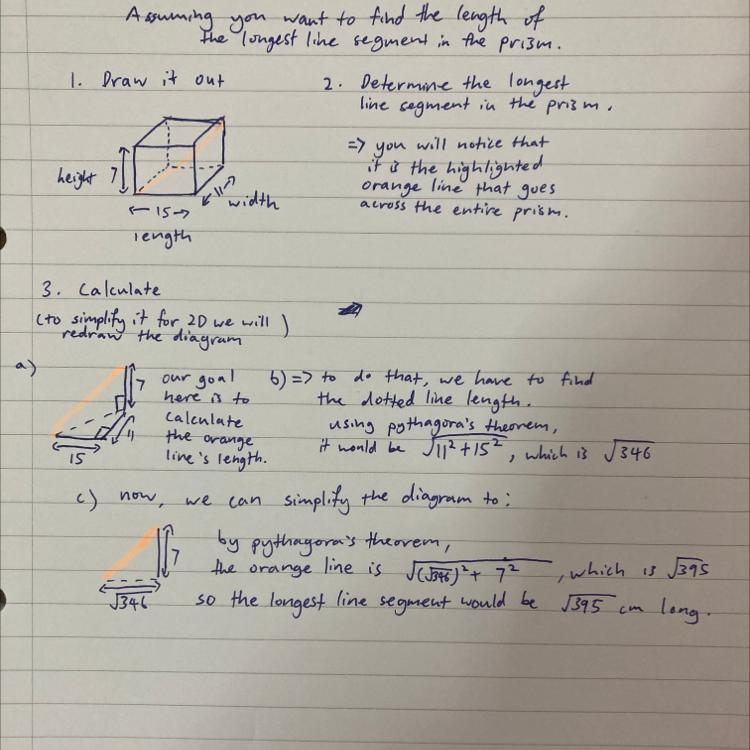 Assuming you want to find the length of
the longest line segment in the prizm.
1. Draw it out
height 7
15
length
11
width
2. Determine the longest
line segment in the prizm.
=> you will notice that
it is the highlighted
orange line that goes
across the entire prism.
3. Calculate
(to simplify it for 2D we will
redraw the diagram)
a)
7
11
15
our goal
here is to
calculate
the orange
line's length.
b) => to do that, we have to find
the dotted line length.
using pythagora's theorem,
it would be √11²+15², which is √346
c) now, we can simplify the diagram to:
7
√346
by pythagora's theorem,
the orange line is √(√346)²+ 7², which is √395
so the longest line segment would be √395 cm long.